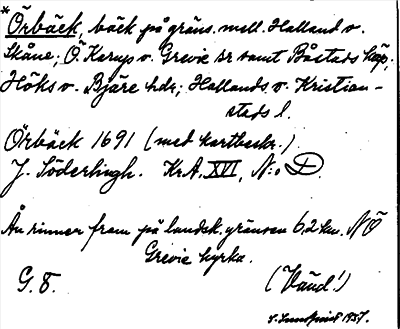 * Örbäck, bäck på gräns. mell. Halland o.
Skåne; Ö. Karup o. Grevie är samt Båstads köp.;
Höks o. Bjäre hdr; Hallands o. Kristian-
stads l.
Örbäck 1691 (med kartbeskr.)
J. Söderlingh. Kr.A. XVI, N:o D.
Ån rinner fram på landsk.gränsen 6,2 km. NÖ
Grevie kyrka.
G. 8. (Vänd!)
1957.